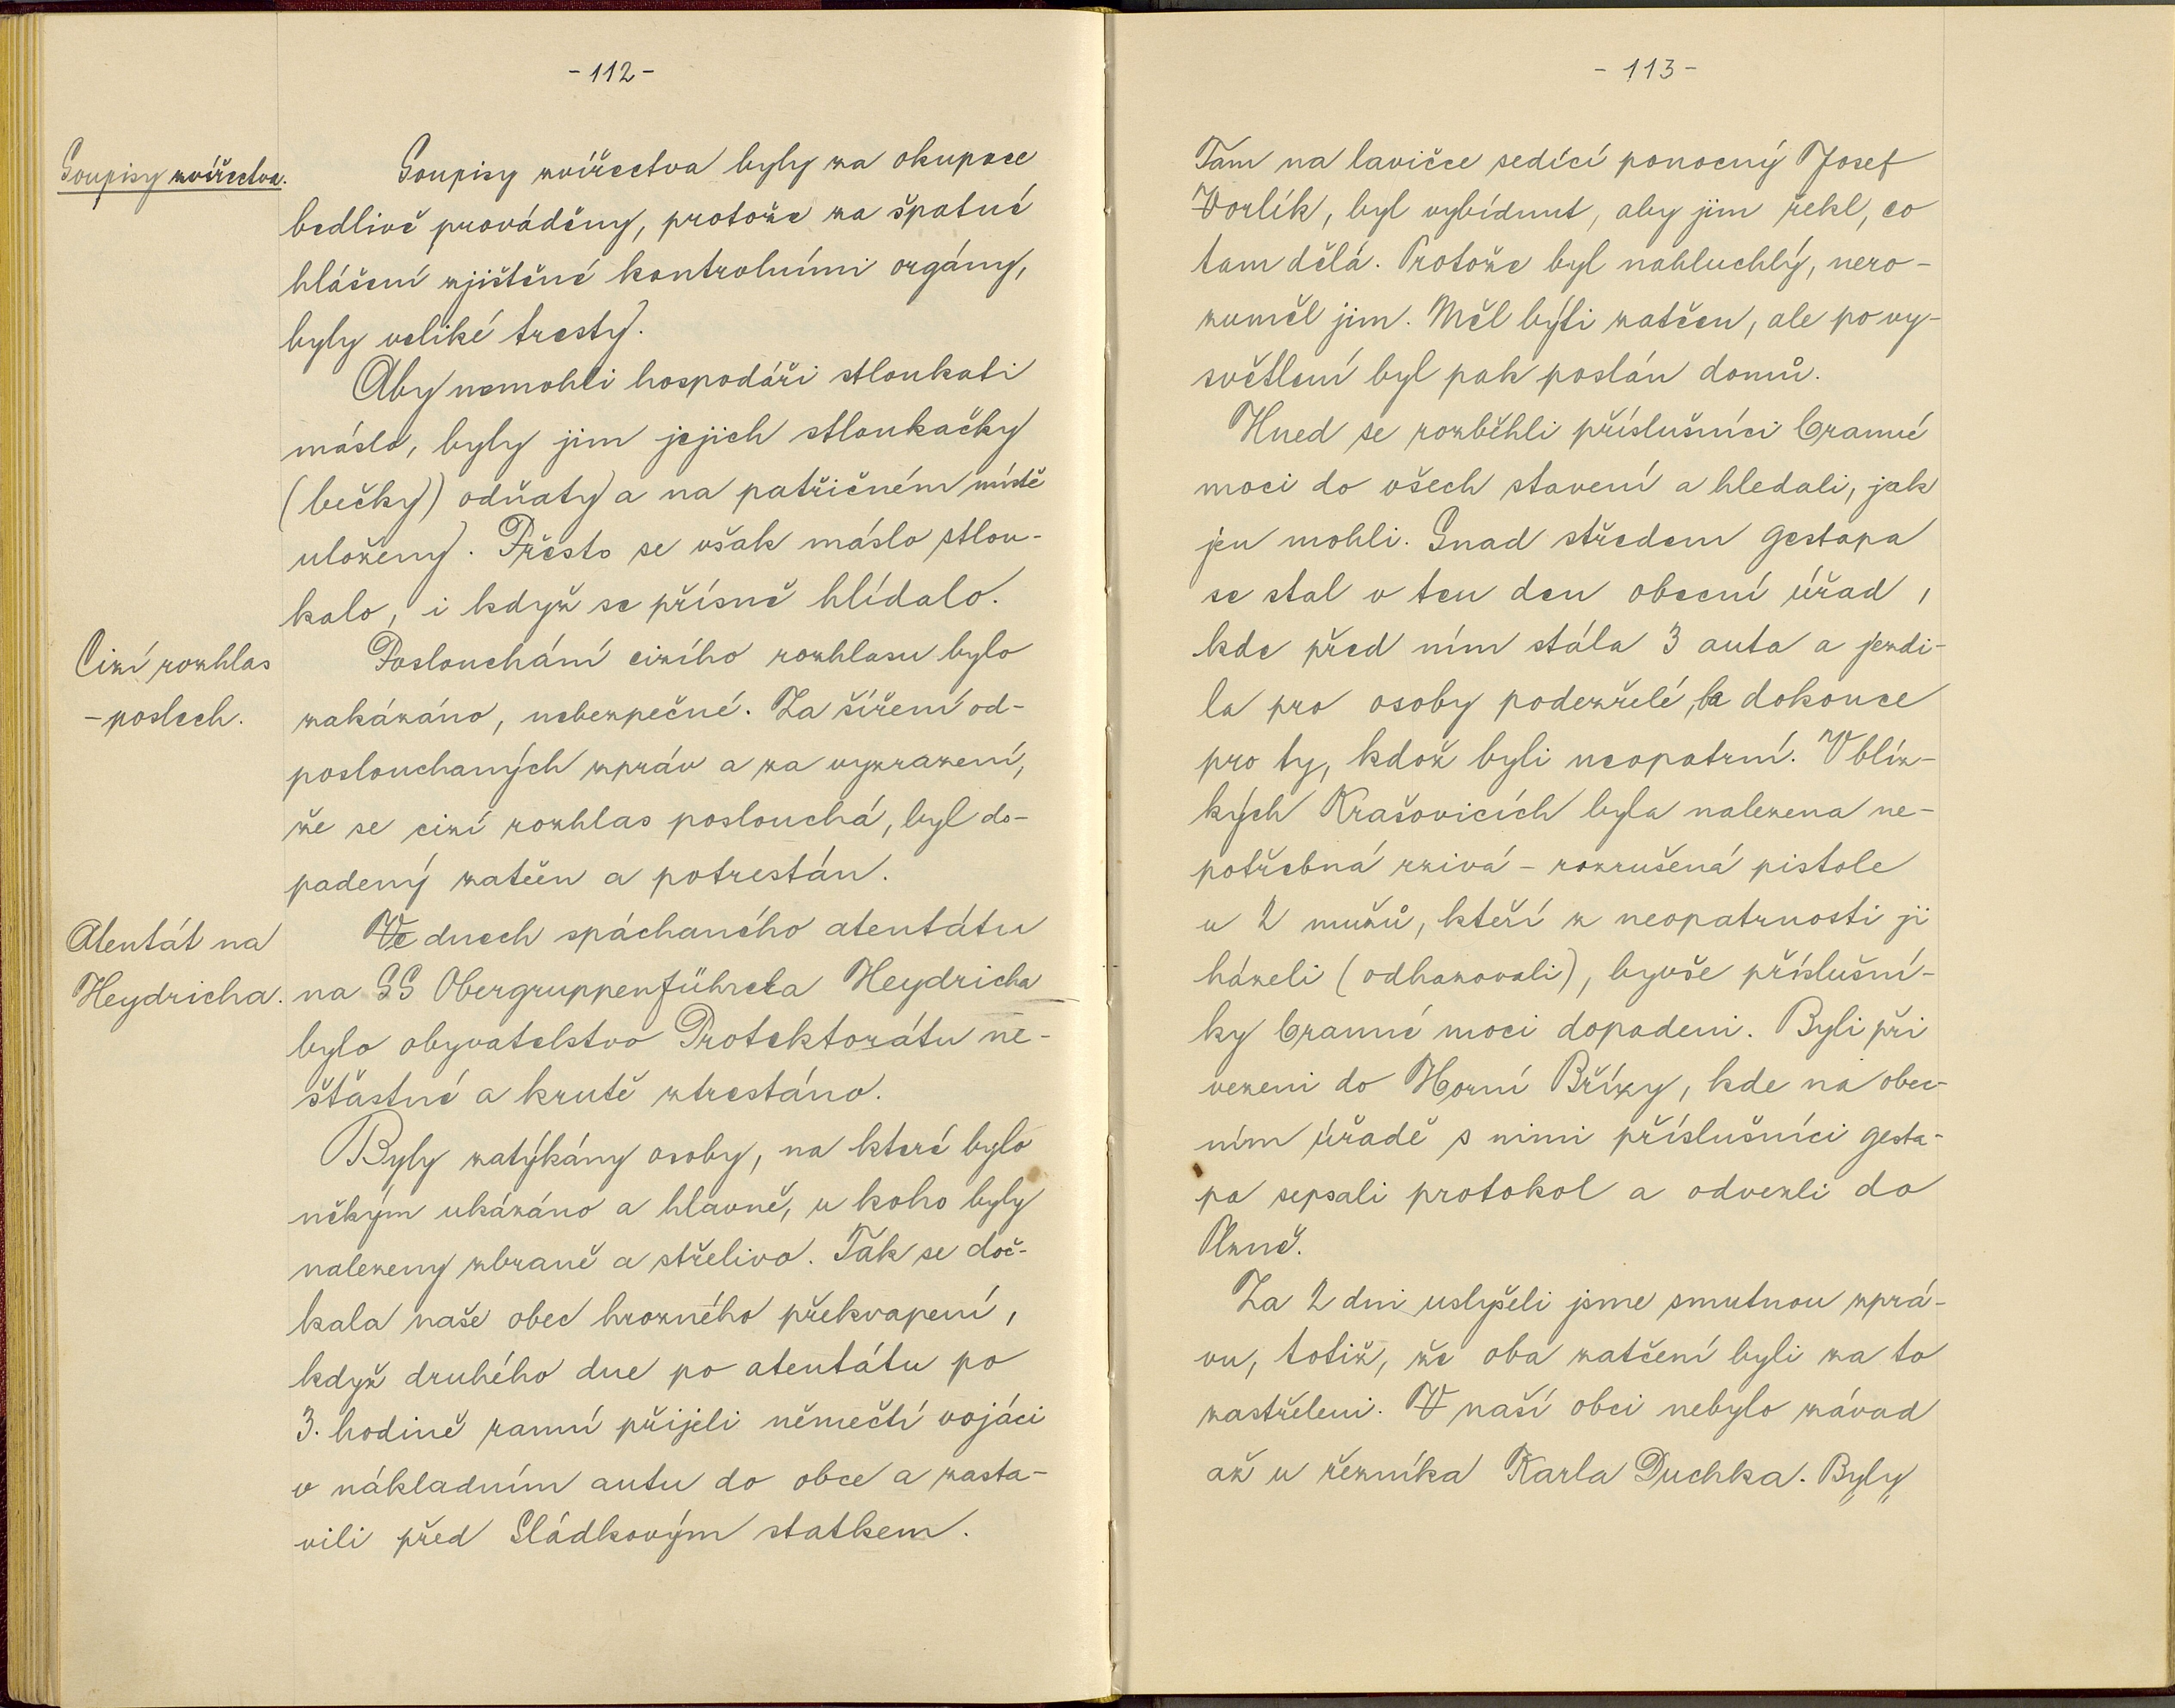 - 112 -
Soupisy zvířectva.
Soupisy zvířectva byly za okupace
bedlivě prováděny, protože za špatné
hlášení zjištěné kontrolními orgány,
byly veliké tresty.
Aby nemohli hospodáři stloukati
máslo, byly jim jejich stloukačky
(bečky) odňaty a na patřičném místě
uloženy. Přesto se však máslo stlou-
kalo, i když se přísně hlídalo.
Cizí rozhlas
- poslech.
Poslouchání cizího rozhlasu bylo
zakázáno, nebezpečné. Za šíření od-
poslouchaných zpráv a za vyzrazení,
že se cizí rozhlas poslouchá, byl do-
padený zatčen a potrestán.
Atentát na
Heydricha.
Ve dnech spáchaného atentátu
na SS Obergruppenführera Heydricha
bylo obyvatelstvo Protektorátu ne-
šťastné a krutě ztrestáno.
Byly zatýkány osoby, na které bylo
někým ukázáno a hlavně, u koho byly
nalezeny zbraně a střelivo. Tak se doč-
kala naše obec hrozného překvapení,
když druhého dne po atentátu po
3. hodině ranní přijeli němečtí vojáci
v nákladním autu do obce a zasta-
vili před Sládkovým statkem.
- 113 -
Tam na lavičce sedící ponocný Josef
Vorlík, byl vybídnut, aby jim řekl, co
tam dělá. Protože byl nahluchlý, nero-
zuměl jim. Měl býti zatčen, ale po vy-
světlení byl pak poslán domů.
Hned se rozběhli příslušníci branné
moci do všech stavení a hledali, jak
jen mohli. Snad středem gestapa
se stal v ten den obecní úřad,
kde před ním stála 3 auta a jezdi-
la pro osoby podezřelé, ba dokonce
pro ty, kdož byli neopatrní. V blíz-
kých Krašovicích byla nalezena ne-
potřebná rzivá - rozrušená pistole
u 2 mužů, kteří z neopatrnosti ji
házeli (odhazovali), byvše příslušní-
ky branné moci dopadeni. Byli při
vezeni do Horní Břízy, kde na obec-
ním úřadě s nimi příslušníci gesta-
pa sepsali protokol a odvezli do
Plzně.
Za 2 dni uslyšeli jsme smutnou zprá-
vu, totiž, že oba zatčení byli za to
zastřeleni. V naší obci nebylo závad
až u řezníka Karla Duchka. Byly